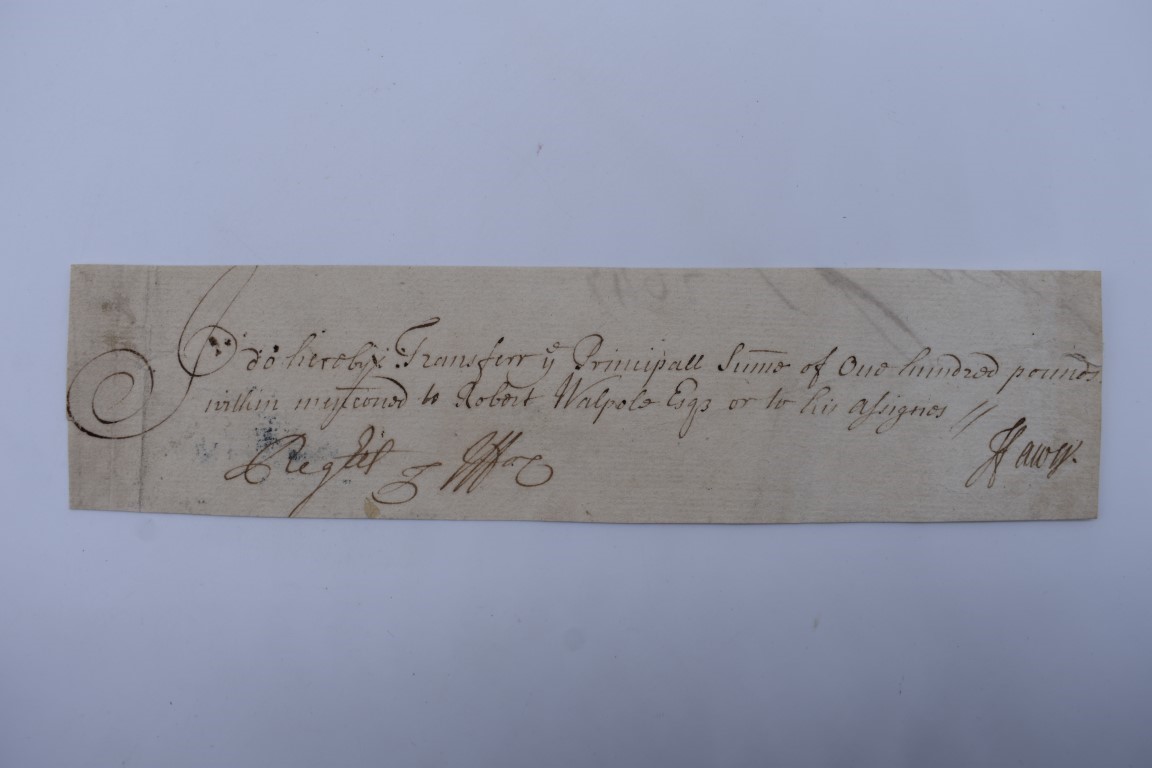 I do hereby Transferr yͤ Principall Sume of One hundred pounds
within menc̄oned to Robert Walpole Esqʒ or to his Assignes //